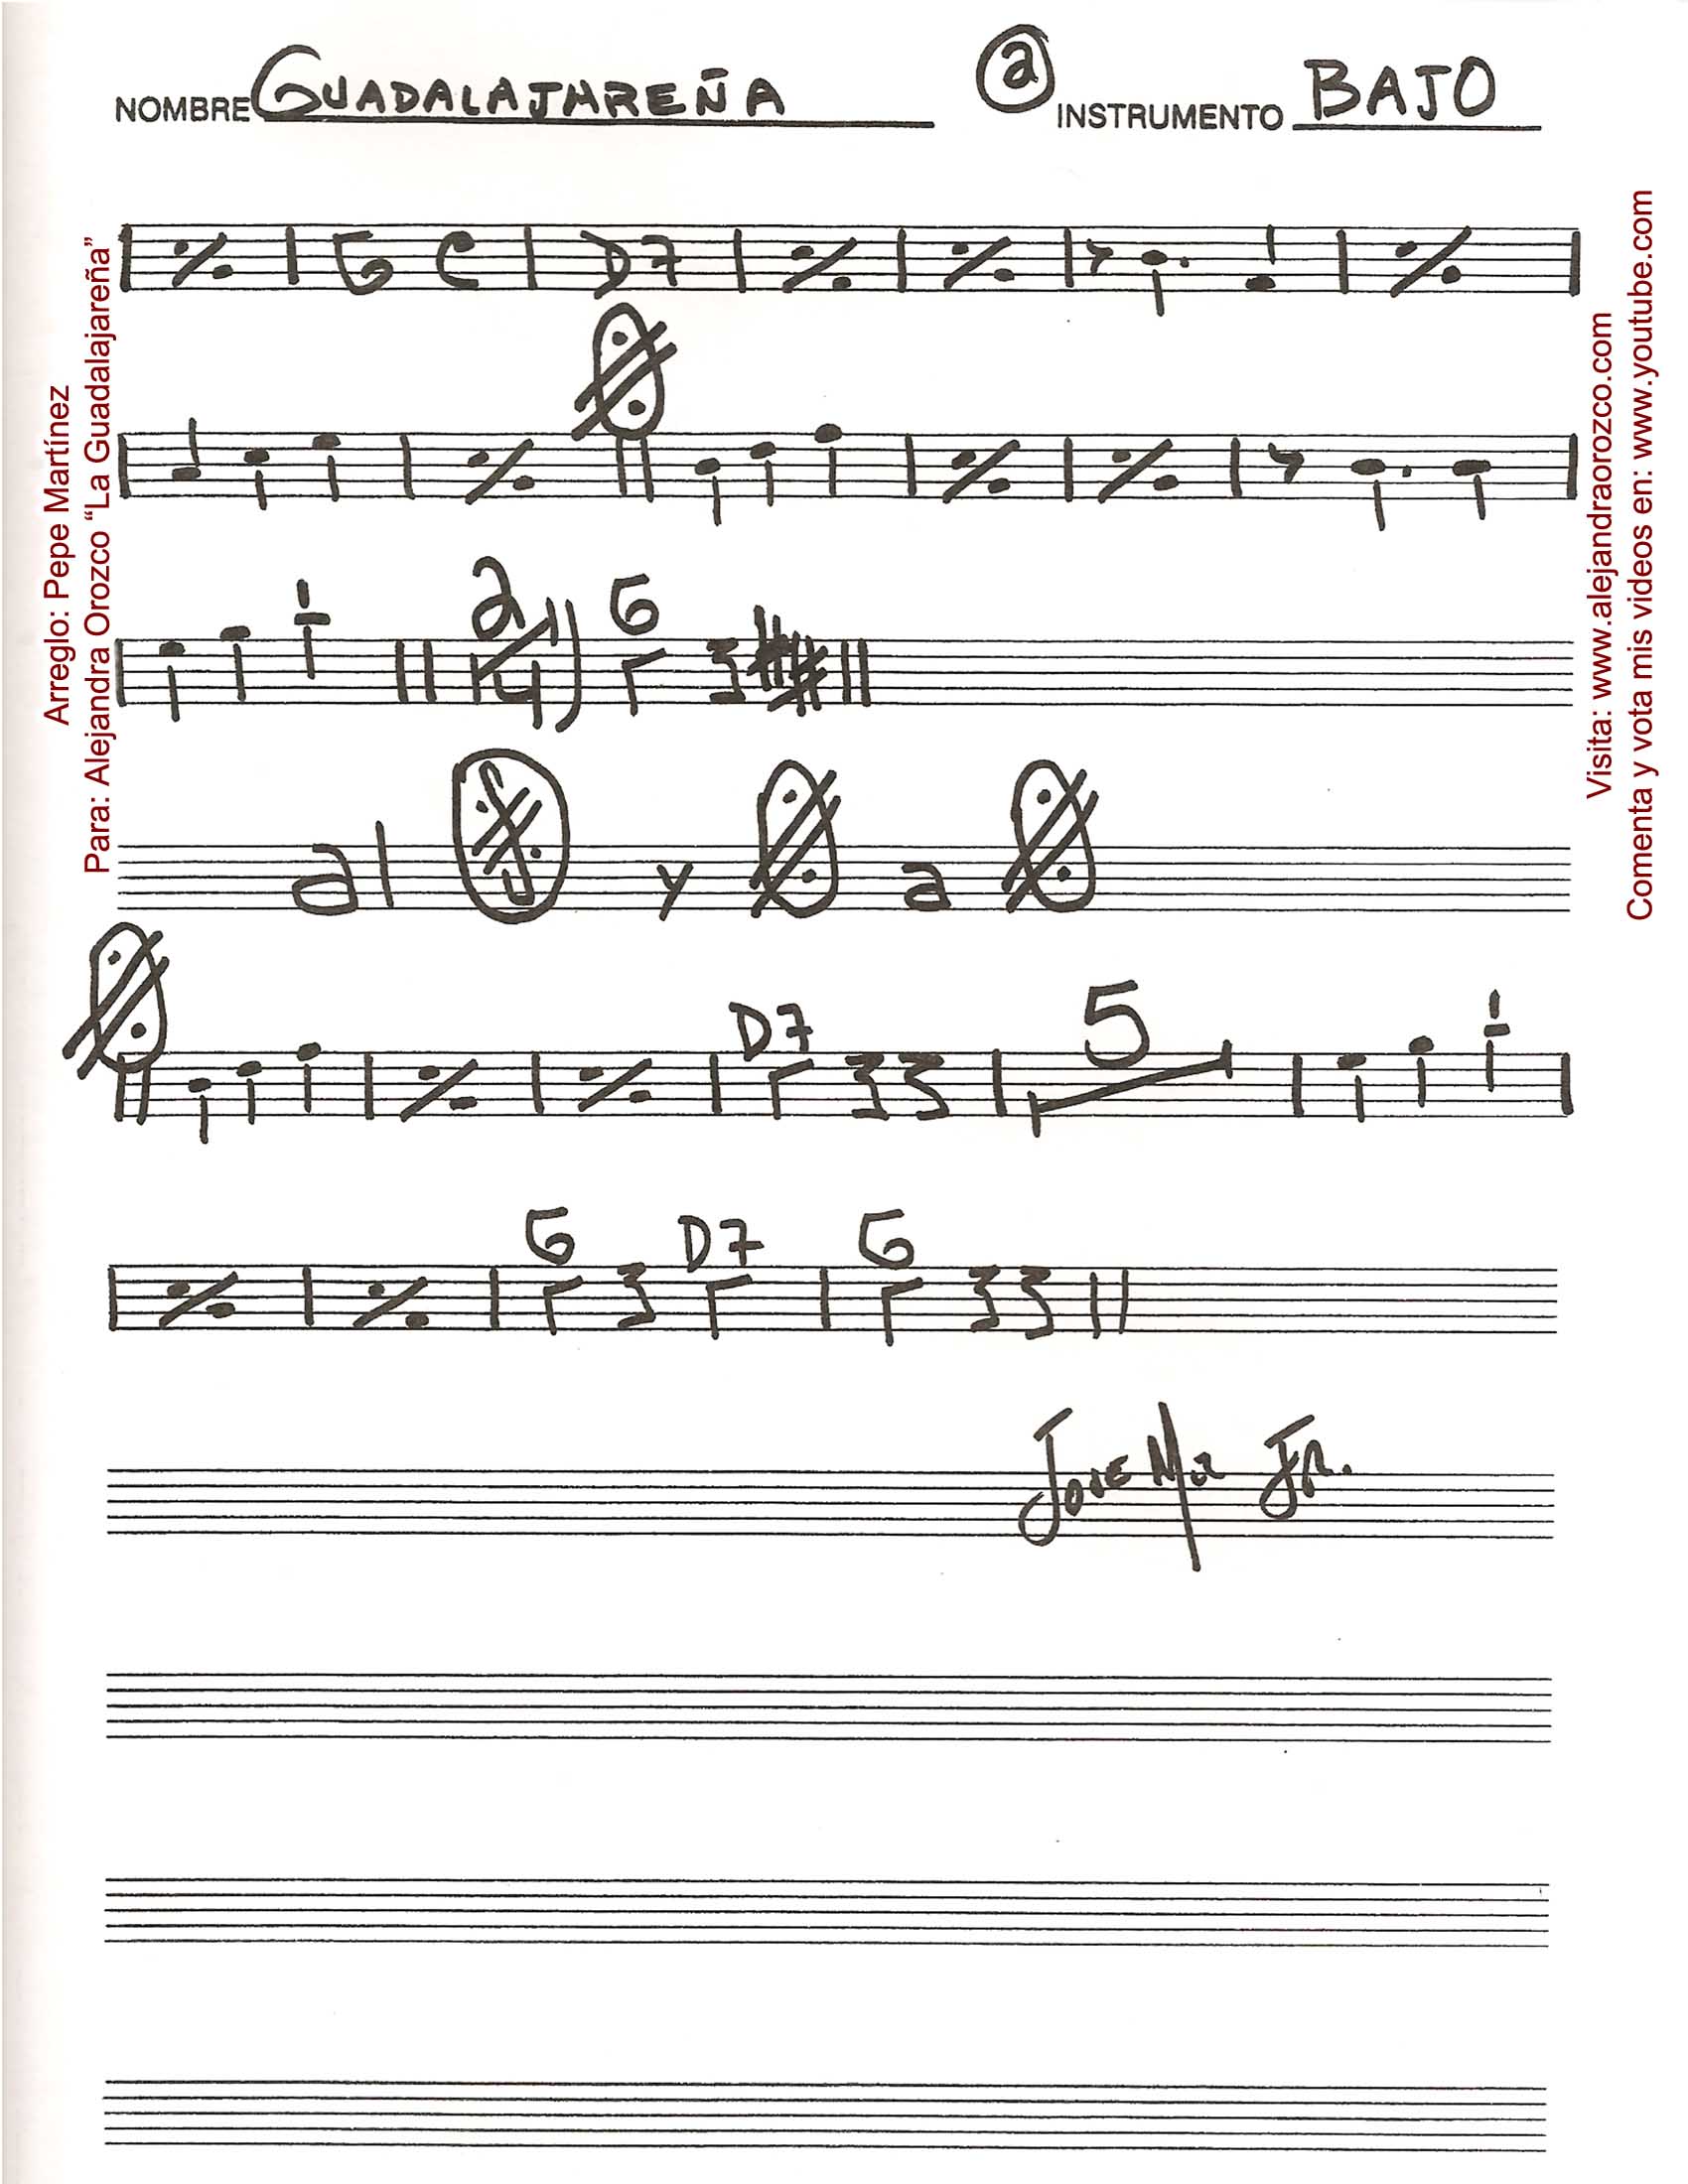 NOMBRE GUADALAJAREÑA 2 INSTRUMENTO BAJO
Arreglo: Pepe Martínez
Para: Alejandra Orozco “La Guadalajareña”
Visita: www.alejandraorozco.com
Comenta y vota mis videos en: www.youtube.com
G C D7
2 G
al y a
D7 5
G D7 G
Jose Jr.